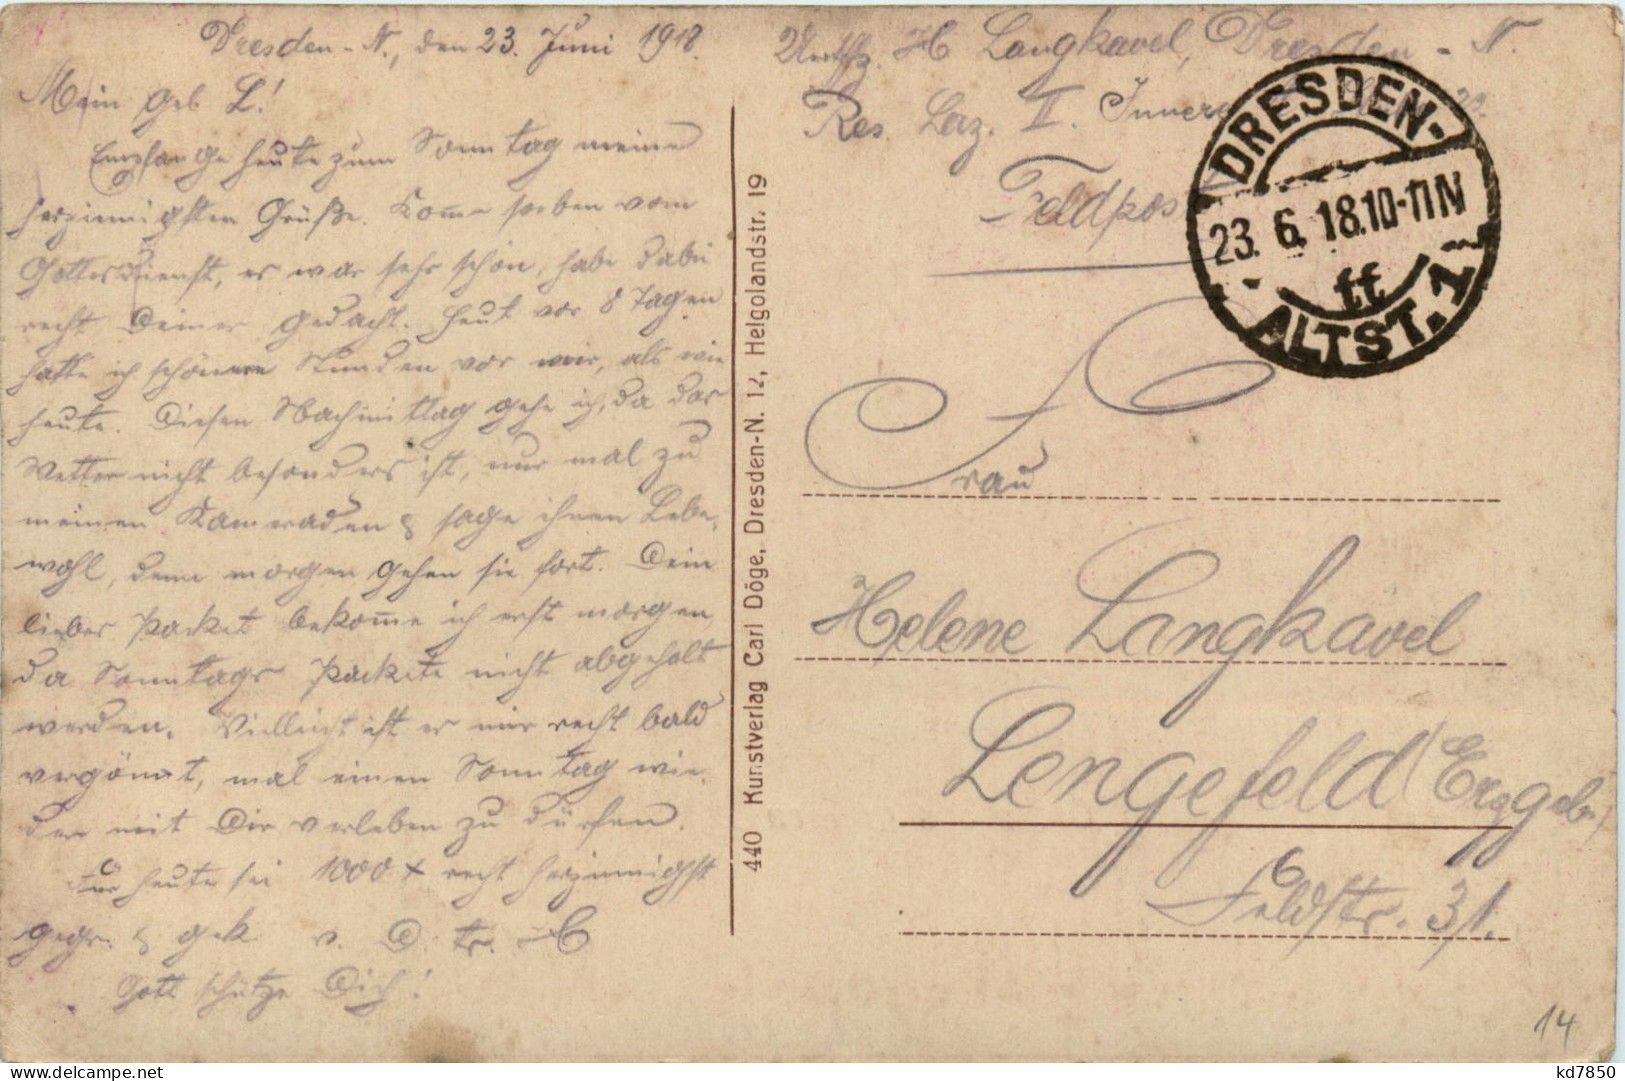 Dresden-N., den 23. Juni 1918.
Mein gel. L.!
Empfange heute zum Sonntag meine
herzinnigsten Grüße. Kom̅e soeben vom
Gottesdienst, es war sehr schön, habe dabei
recht Deiner gedacht. Heut vor 8 Tagen
hatte ich schönere Stunden vor mir, als wie
heute. Diesen Nachmittag gehe ich, da das
Wetter nicht besonders ist, nur mal zu
meinen Kameraden & sage ihnen Lebe-
wohl, denn morgen gehen sie fort. Dein
liebes Packet bekom̅e ich erst morgen,
da Sonntags Packete nicht abgeholt
werden. Vielleicht ist es mir recht bald
vergönnt, mal einen Sonntag wie-
der mit Dir verleben zu dürfen.
Für heute sei 1000 x recht herzinnigst
gegr. & gek. v. D. tr. H
Gott schütze Dich!
440 Kunstverlag Carl Döge, Dresden-N. 12, Helgolandstr. 19
H Langkavel, Dresden-N.
Res. Laz. II. Innere
Feldpost
DRESDEN-
23. 6. 18. 10-11 N
tt
ALTST. 1
Frau
Helene Langkavel
Lengefeld (Erzgeb.)
Feldstr. 31.
14
kd7850